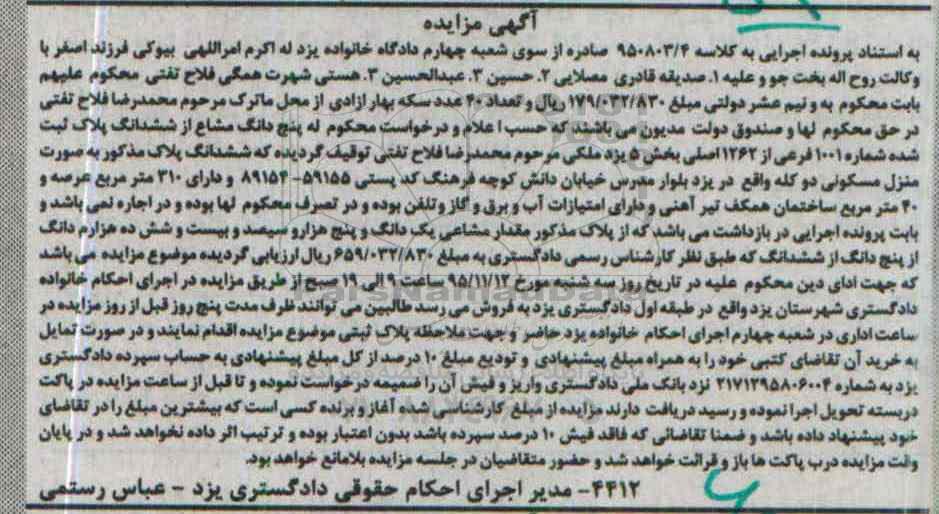 آگهی مزایده
به استناد پرونده اجرایی به کلاسه ۹۵۰۸۰۳/۴ صادره از سوی شعبه چهارم دادگاه خانواده یزد له اکرم امراللهی بیوکی فرزند اصغر با
وکالت روح اله بخت جو و علیه ۱. صدیقه قادری مصلایی ۲. حسین ۳. عبدالحسین ۳. هستی شهرت همگی فلاح تفتی محکوم علیهم
بابت محکوم به و نیم عشر دولتی مبلغ ۱۷۹/۰۳۲/۸۳۰ ریال و تعداد ۴۰ عدد سکه بهار ازادی از محل ماترک مرحوم محمدرضا فلاح تفتی
در حق محکوم لها و صندوق دولت مدیون می باشند که حسب اعلام و درخواست محکوم له پنج دانگ مشاع از ششدانگ پلاک ثبت
شده شماره ۱۰۰۱ فرعی از ۱۲۶۲ اصلی بخش ۵ یزد ملکی مرحوم محمدرضا فلاح تفتی توقیف گردیده که ششدانگ پلاک مذکور به صورت
منزل مسکونی دو کله واقع در یزد بلوار مدرس خیابان دانش کوچه فرهنگ کد پستی ۵۹۱۵۵-۸۹۱۵۴ و دارای ۳۱۰ متر مربع عرصه و
۴۰ متر مربع ساختمان همکف تیر آهنی و دارای امتیازات آب و برق و گاز و تلفن بوده و در تصرف محکوم لها بوده و در اجاره نمی باشد و
بابت پرونده اجرایی در بازداشت می باشد که از پلاک مذکور مقدار مشاعی یک دانگ و پنج هزارو سیصد و بیست و شش ده هزارم دانگ
از پنج دانگ از ششدانگ که طبق نظر کارشناس رسمی دادگستری به مبلغ ۶۵۹/۰۳۲/۸۳۰ ریال ارزیابی گردیده موضوع مزایده می باشد
که جهت ادای دین محکوم علیه در تاریخ روز سه شنبه مورخ ۹۵/۱۱/۱۲ ساعت ۹ الی ۱۹ صبح از طریق مزایده در اجرای احکام خانواده
دادگستری شهرستان یزد واقع در طبقه اول دادگستری یزد به فروش می رسد طالبین می توانند ظرف مدت پنج روز قبل از روز مزایده در
ساعت اداری در شعبه چهارم اجرای احکام خانواده یزد حاضر و جهت ملاحظه پلاک ثبتی موضوع مزایده اقدام نمایند و در صورت تمایل
به خرید آن تقاضای کتبی خود را به همراه مبلغ پیشنهادی و تودیع مبلغ ۱۰ درصد از کل مبلغ پیشنهادی به حساب سپرده دادگستری
یزد به شماره ۲۱۷۱۲۹۵۸۰۶۰۰۴ نزد بانک ملی دادگستری واریز و فیش آن را ضمیمه درخواست نموده و تا قبل از ساعت مزایده در پاکت
دربسته تحویل اجرا نموده و رسید دریافت دارند مزایده از مبلغ کارشناسی شده آغاز و برنده کسی است که بیشترین مبلغ را در تقاضای
خود پیشنهاد داده باشد و ضمنا تقاضائی که فاقد فیش ۱۰ درصد سپرده باشد بدون اعتبار بوده و ترتیب اثر داده نخواهد شد و در پایان
وقت مزایده درب پاکت ها باز و قرائت خواهد شد و حضور متقاضیان در جلسه مزایده بلامانع خواهد بود.
۴۴۱۲- مدیر اجرای احکام حقوقی دادگستری یزد - عباس رستمی